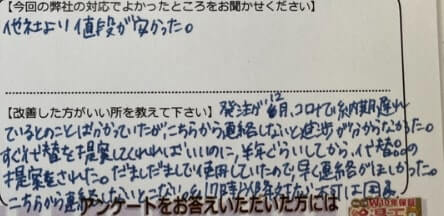 【今回の弊社の対応でよかったところをお聞かせください】
他社より値段が安かった。
【改善した方がいい所を教えて下さい】発注が12月、コロナで納期遅れ
ているとのことはわかっていたがこちらから連絡しないと進捗が分からなかった。
すぐ代替を提案してくれればいいのに、半年ぐらいしてから、代替品の
提案をされた。だましだましで使用していたので、早く連絡がほしかった。
こちらから連絡しないとこない
アンケートをお答えいただいた方には
10年保証